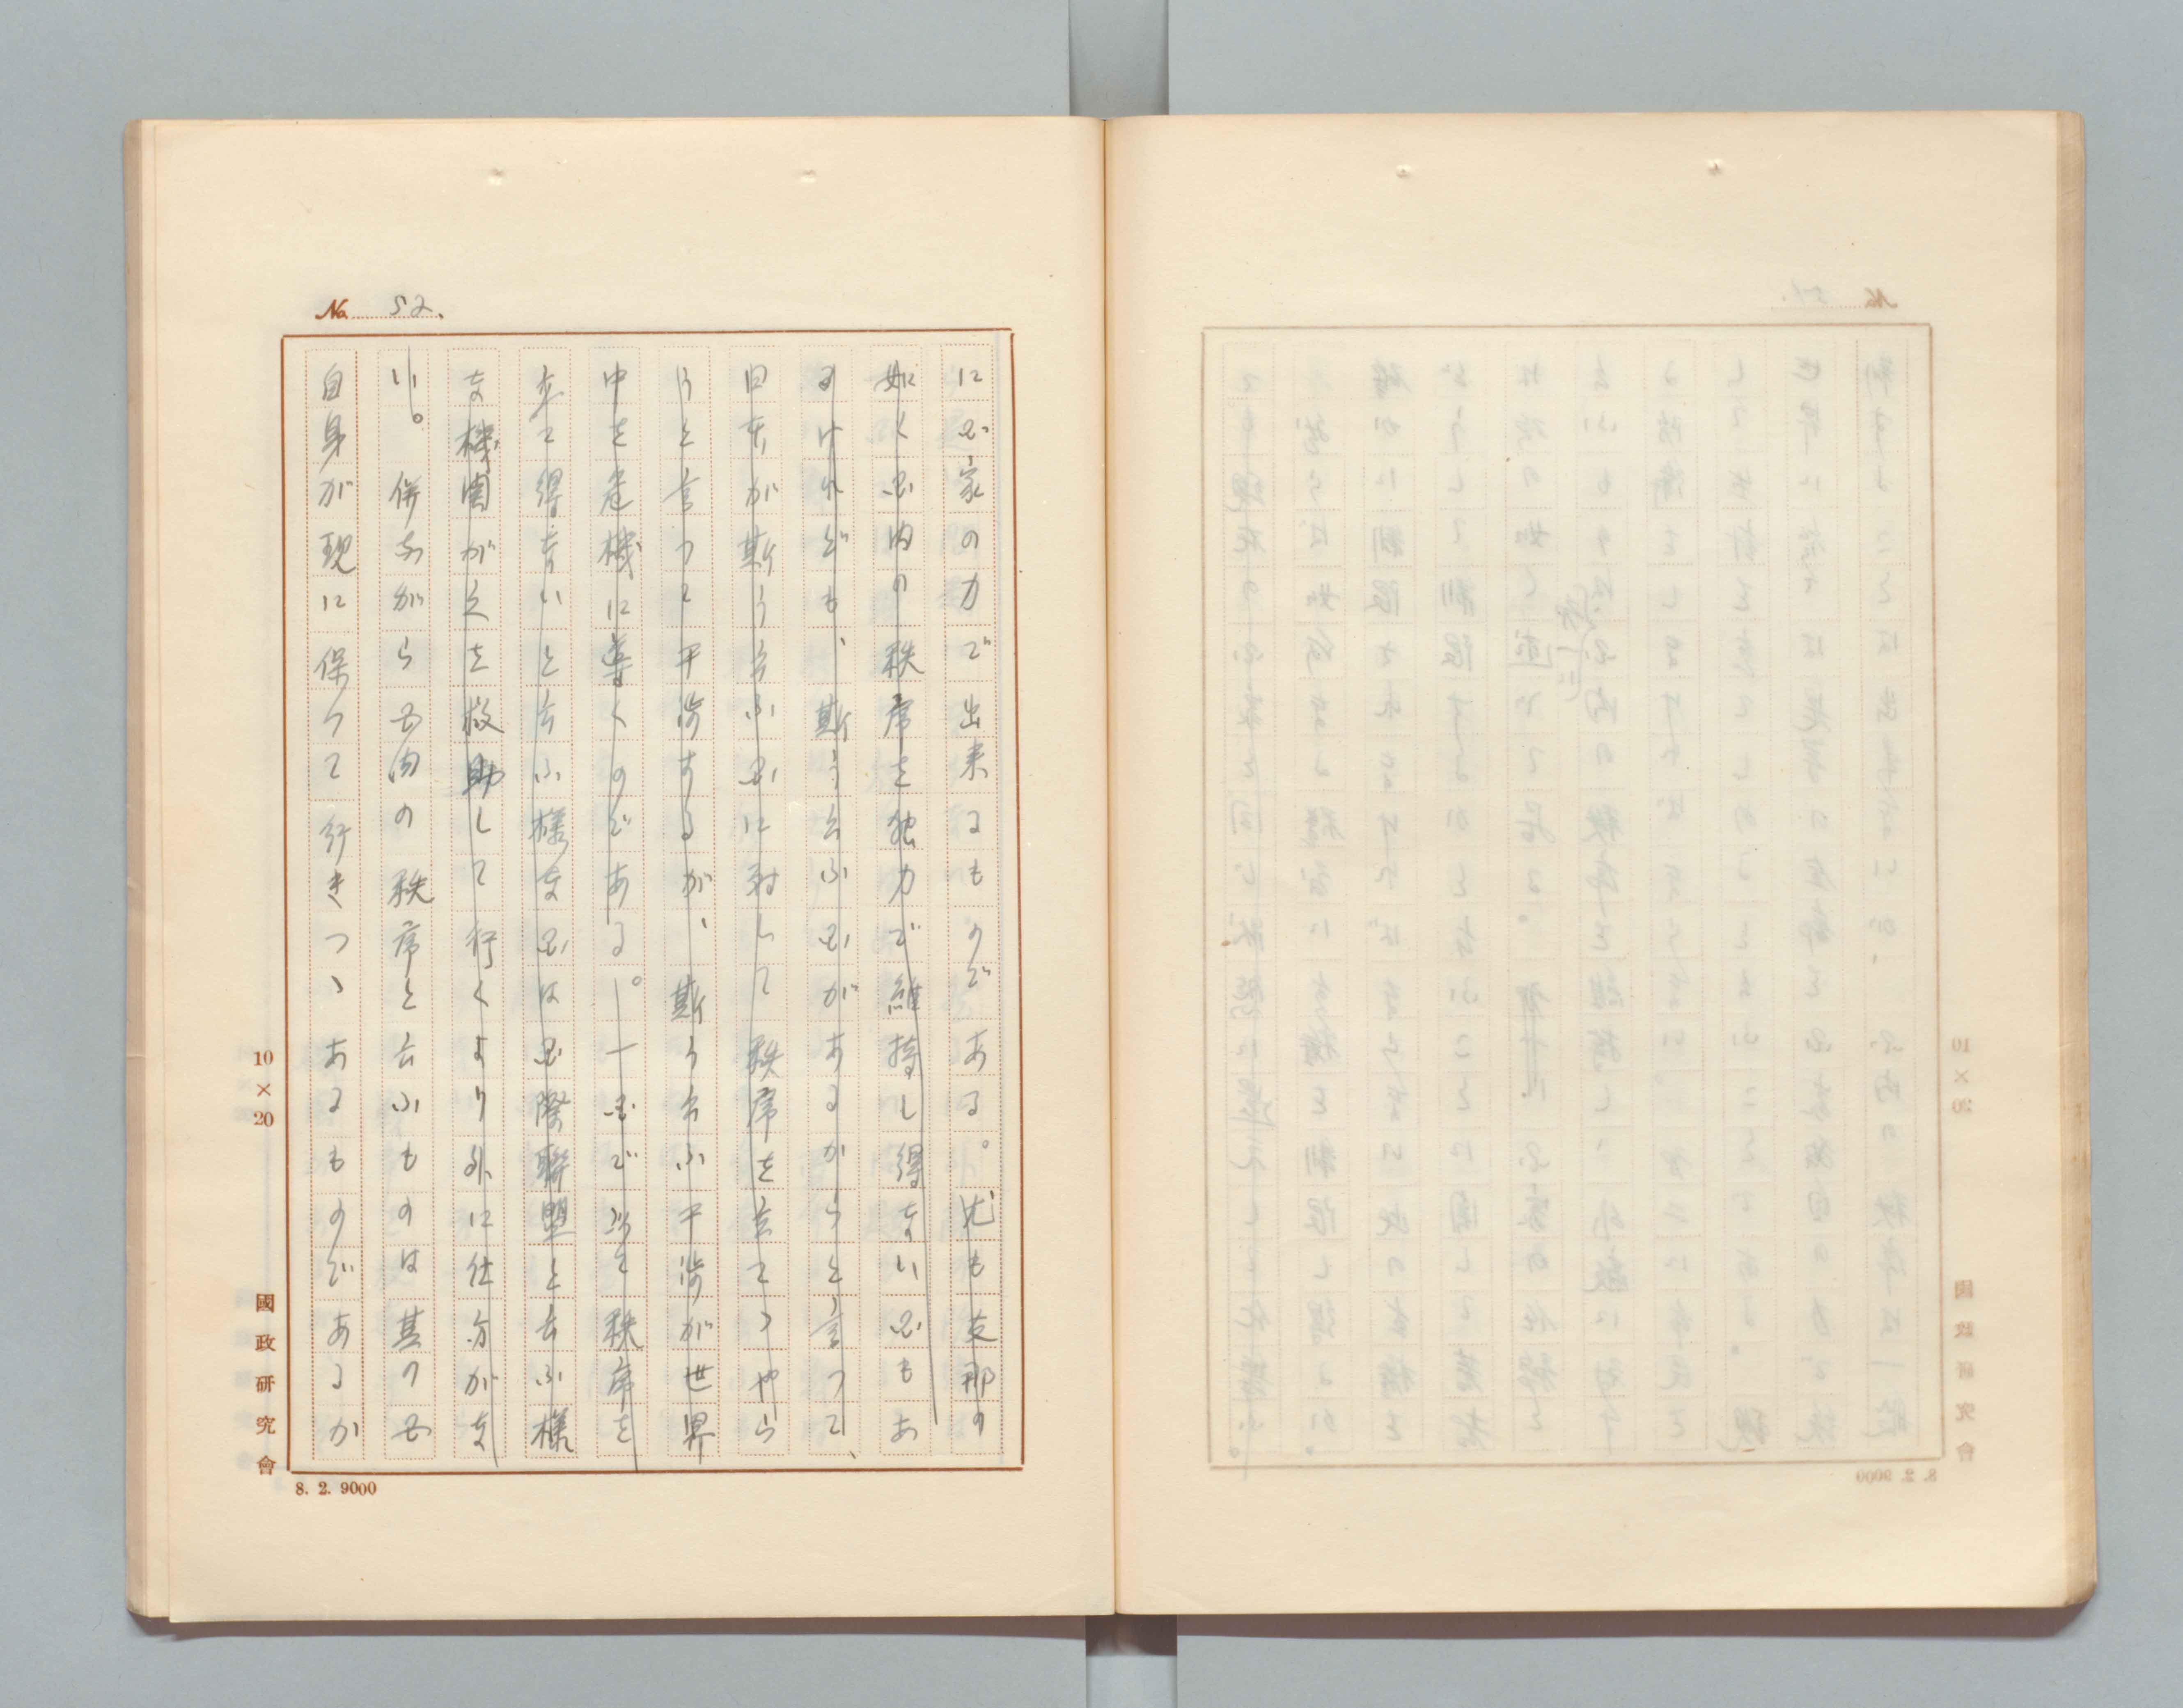 No. 52.
に国家の力で出来るものである。尤も支那の
如く国内の秩序を独力で維持し得ない国もあ
るけれども、斯う云ふ国があるからと言つて、
日本が斯う云ふ国に対して秩序を立てゝやら
うと言つて干渉するが、斯う云ふ干渉が世界
中を危機に導くのである。一国で以て秩序を
立て得ないと云ふ様な国は国際聯盟と云ふ様
な機関が之を救助して行くより外に仕方がな
い。併ながら国内の秩序と云ふものは其の国
自身が現に保つて行きつゝあるものであるか
10×20
國政研究會
8. 2. 9000